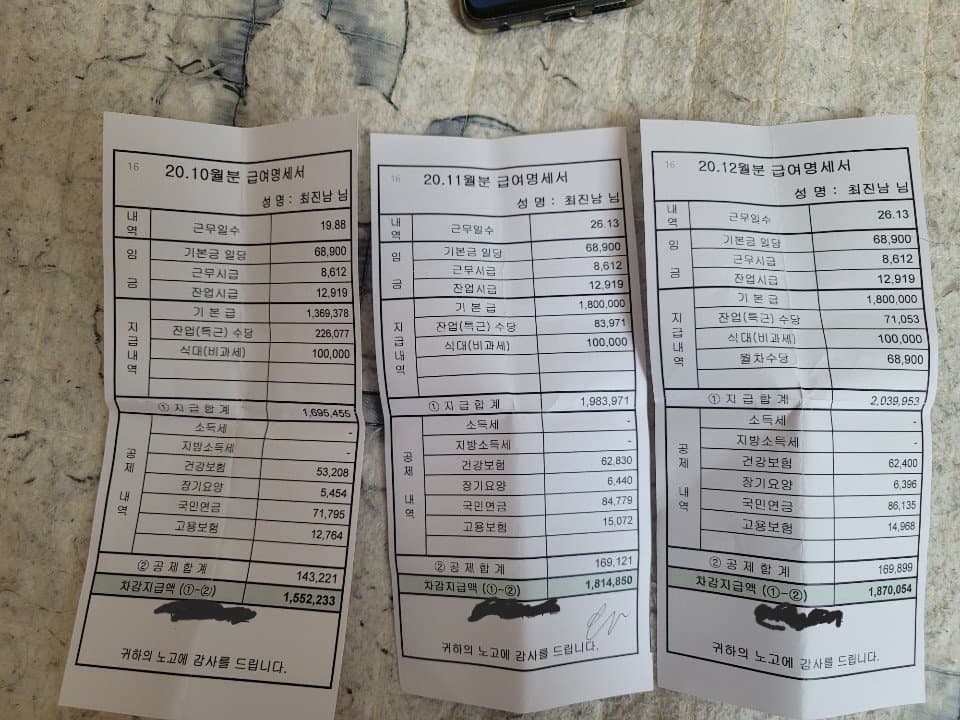 16
20.10월분 급여명세서
성 명 : 최진남 님
내역 근무일수 19.88
임금 기본금 일당 68,900
근무시급 8,612
잔업시급 12,919
지급내역 기 본 급 1,369,378
잔업(특근) 수당 226,077
식대(비과세) 100,000
① 지 급 합 계 1,695,455
공제 내역 소득세 -
지방소득세 -
건강보험 53,208
장기요양 5,454
국민연금 71,795
고용보험 12,764
② 공 제 합 계 143,221
차감지급액 (①-②) 1,552,233
귀하의 노고에 감사를 드립니다.
16
20.11월분 급여명세서
성 명 : 최진남 님
내역 근무일수 26.13
임금 기본금 일당 68,900
근무시급 8,612
잔업시급 12,919
지급내역 기 본 급 1,800,000
잔업(특근) 수당 83,971
식대(비과세) 100,000
① 지 급 합 계 1,983,971
공제 내역 소득세 -
지방소득세 -
건강보험 62,830
장기요양 6,440
국민연금 84,779
고용보험 15,072
② 공 제 합 계 169,121
차감지급액 (①-②) 1,814,850
귀하의 노고에 감사를 드립니다.
16
20.12월분 급여명세서
성 명 : 최진남 님
내역 근무일수 26.13
임금 기본금 일당 68,900
근무시급 8,612
잔업시급 12,919
지급내역 기 본 급 1,800,000
잔업(특근) 수당 71,053
식대(비과세) 100,000
월차수당 68,900
① 지 급 합 계 2,039,953
공제 내역 소득세 -
지방소득세 -
건강보험 62,400
장기요양 6,396
국민연금 86,135
고용보험 14,968
② 공 제 합 계 169,899
차감지급액 (①-②) 1,870,054
귀하의 노고에 감사를 드립니다.